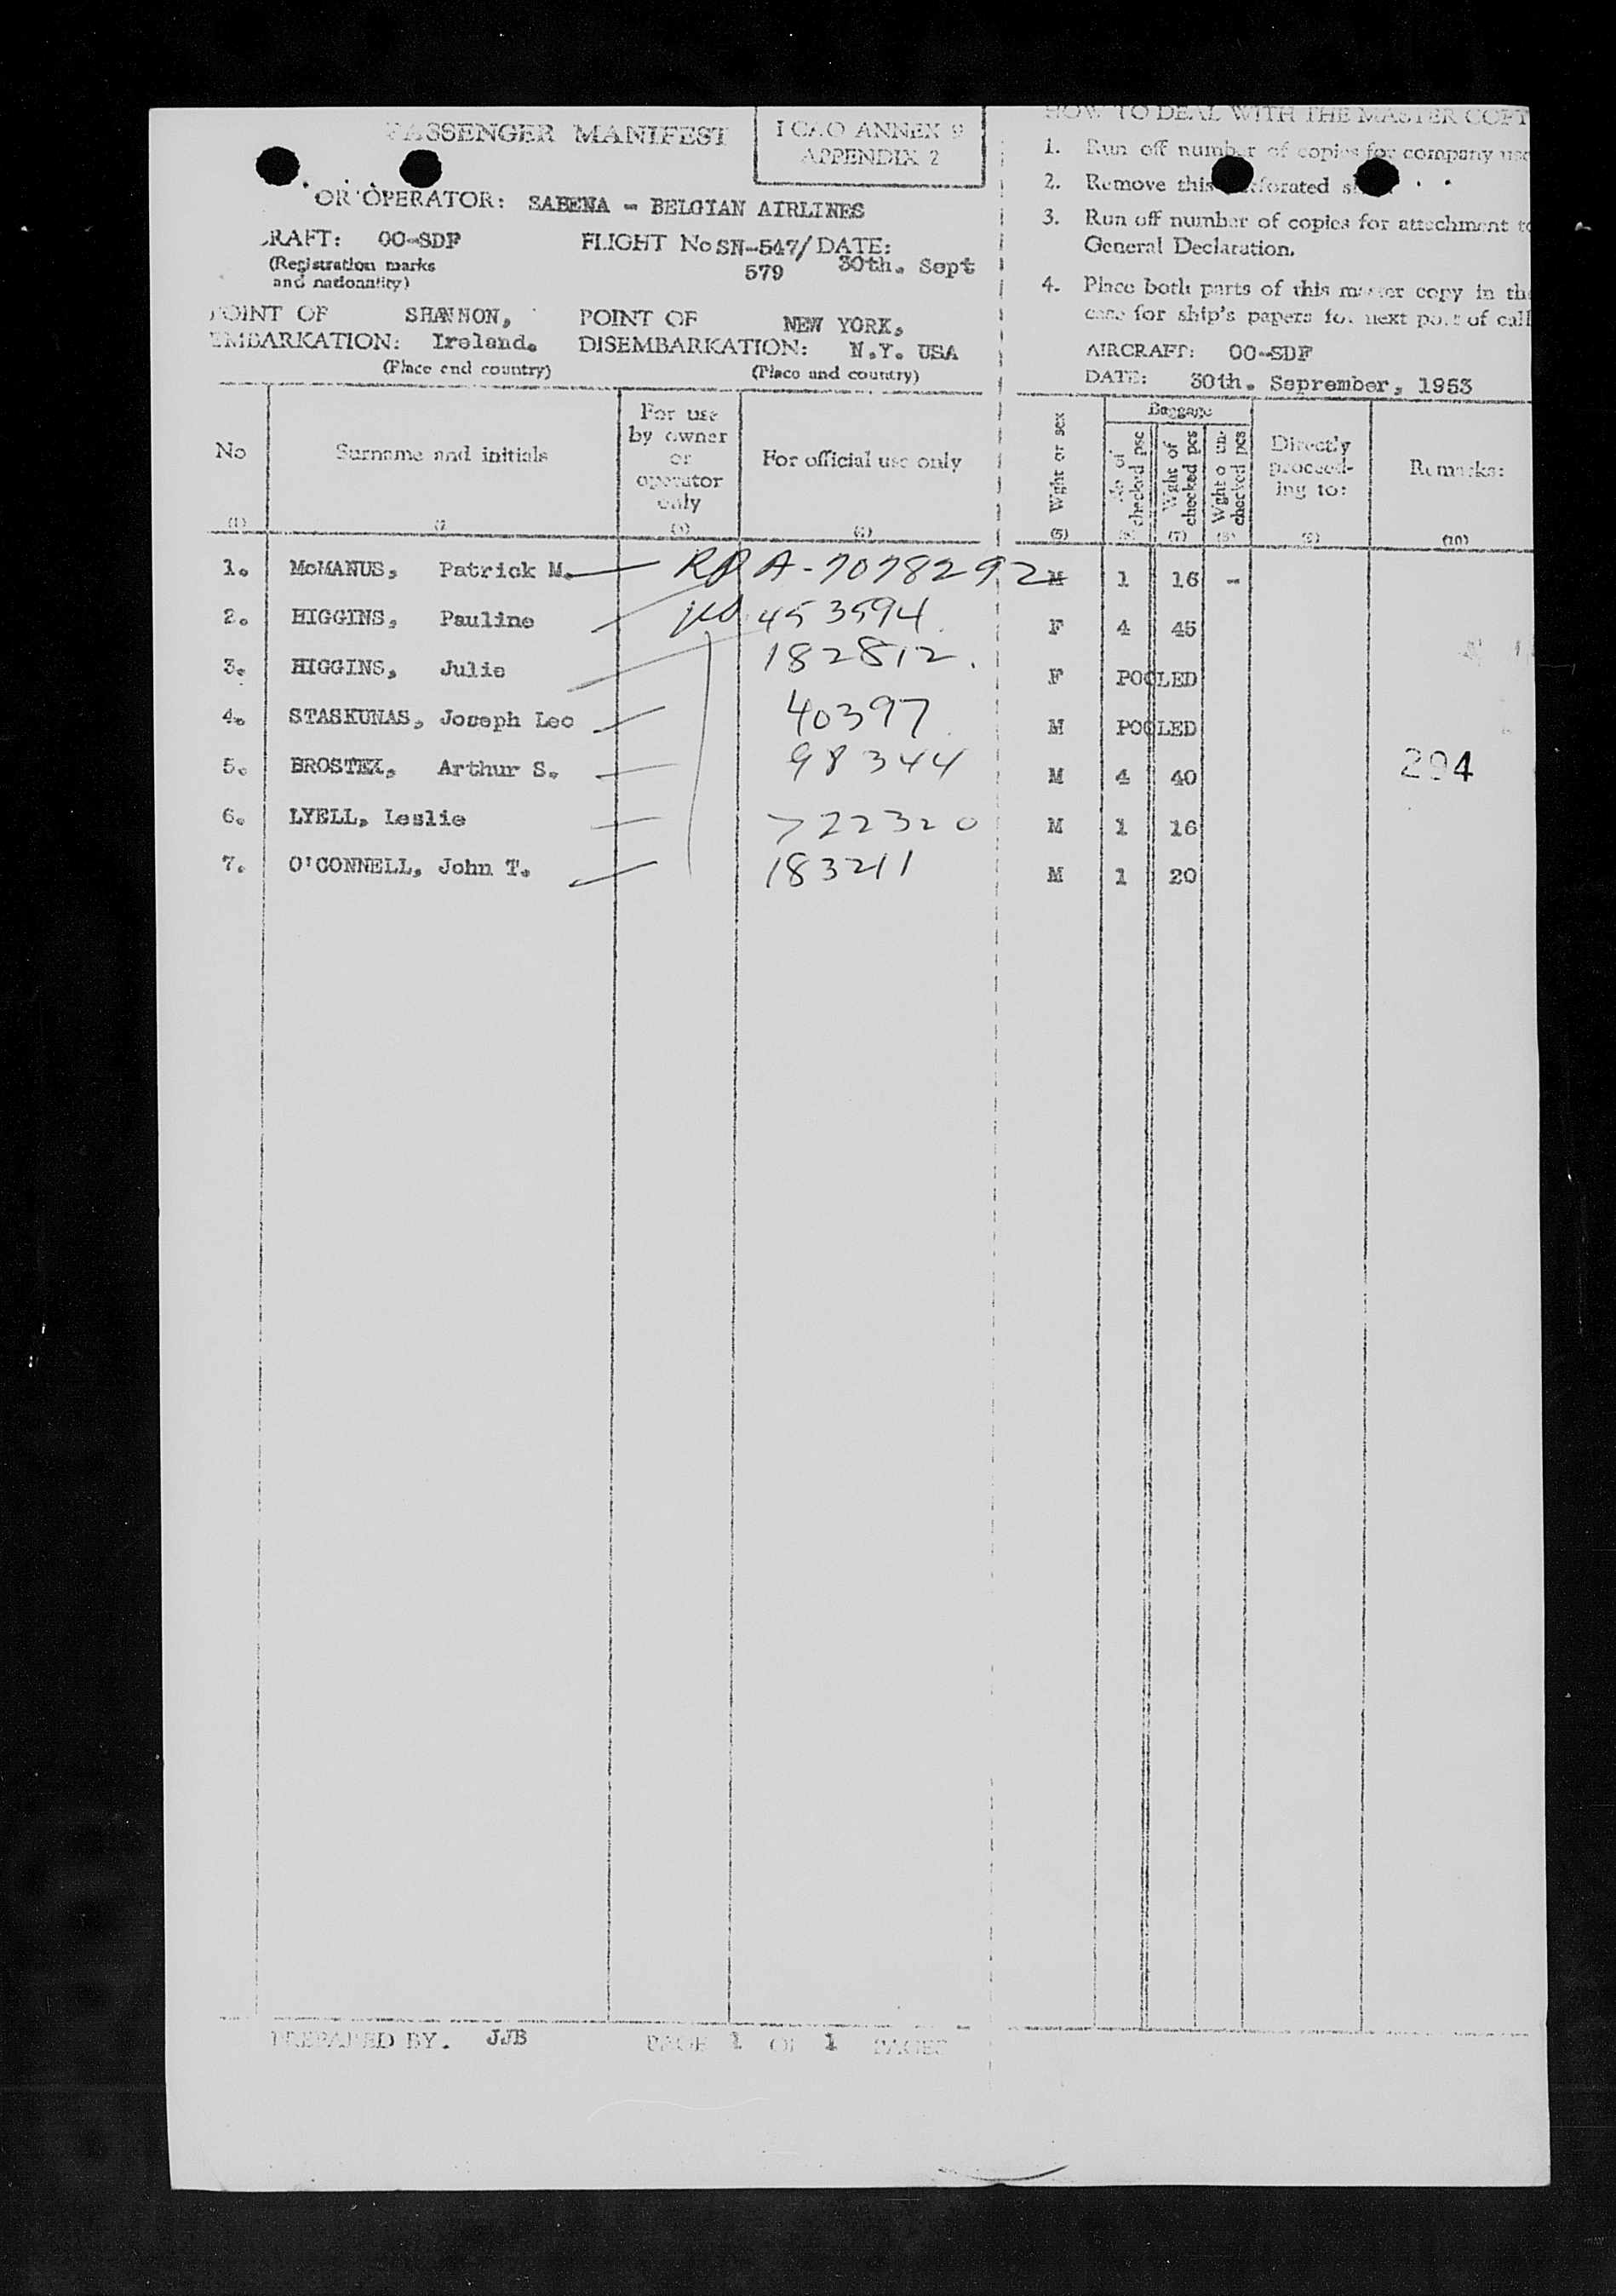 PASSENGER MANIFEST
I C A O ANNEX 9
APPENDIX 2
OR OPERATOR: SABENA - BELGIAN AIRLINES
RAFT: OO-SDF
(Registration marks
and nationality)
FLIGHT No SN-547/
579
DATE:
30th. Sept
POINT OF
EMBARKATION:
SHANNON,
Ireland.
(Place and country)
POINT OF
DISEMBARKATION:
NEW YORK,
N.Y. USA
(Place and country)
HOW TO DEAL WITH THE MASTER COPY
1. Run off number of copies for company use
2. Remove this perforated
3. Run off number of copies for attachment to
General Declaration.
4. Place both parts of this master copy in the
case for ship's papers for next port of call
AIRCRAFT: OO-SDF
DATE: 30th. Seprember, 1953
No
(1)
Surname and initials
For use
by owner
or
operator
only
(3)
For official use only
(4)
Wght or sex
(5)
Baggage
No of
checked psc
Wght of
checked pcs
(7)
Wght o un-
checked pcs
(8)
Directly
proceed-
ing to:
(9)
Remarks:
(10)
1. McMANUS, Patrick M. A-7078292 M 1 16 -
2. HIGGINS, Pauline 453594 F 4 45
3. HIGGINS, Julie 182812. F POOLED
4. STASKUNAS, Joseph Leo 40397 M POOLED
5. BROSTEK, Arthur S. 98344 M 4 40
294
6. LYELL, Leslie 722320 M 1 16
7. O'CONNELL, John T. 183211 M 1 20
PREPARED BY. JJB PAGE 1 OF 1 PAGES